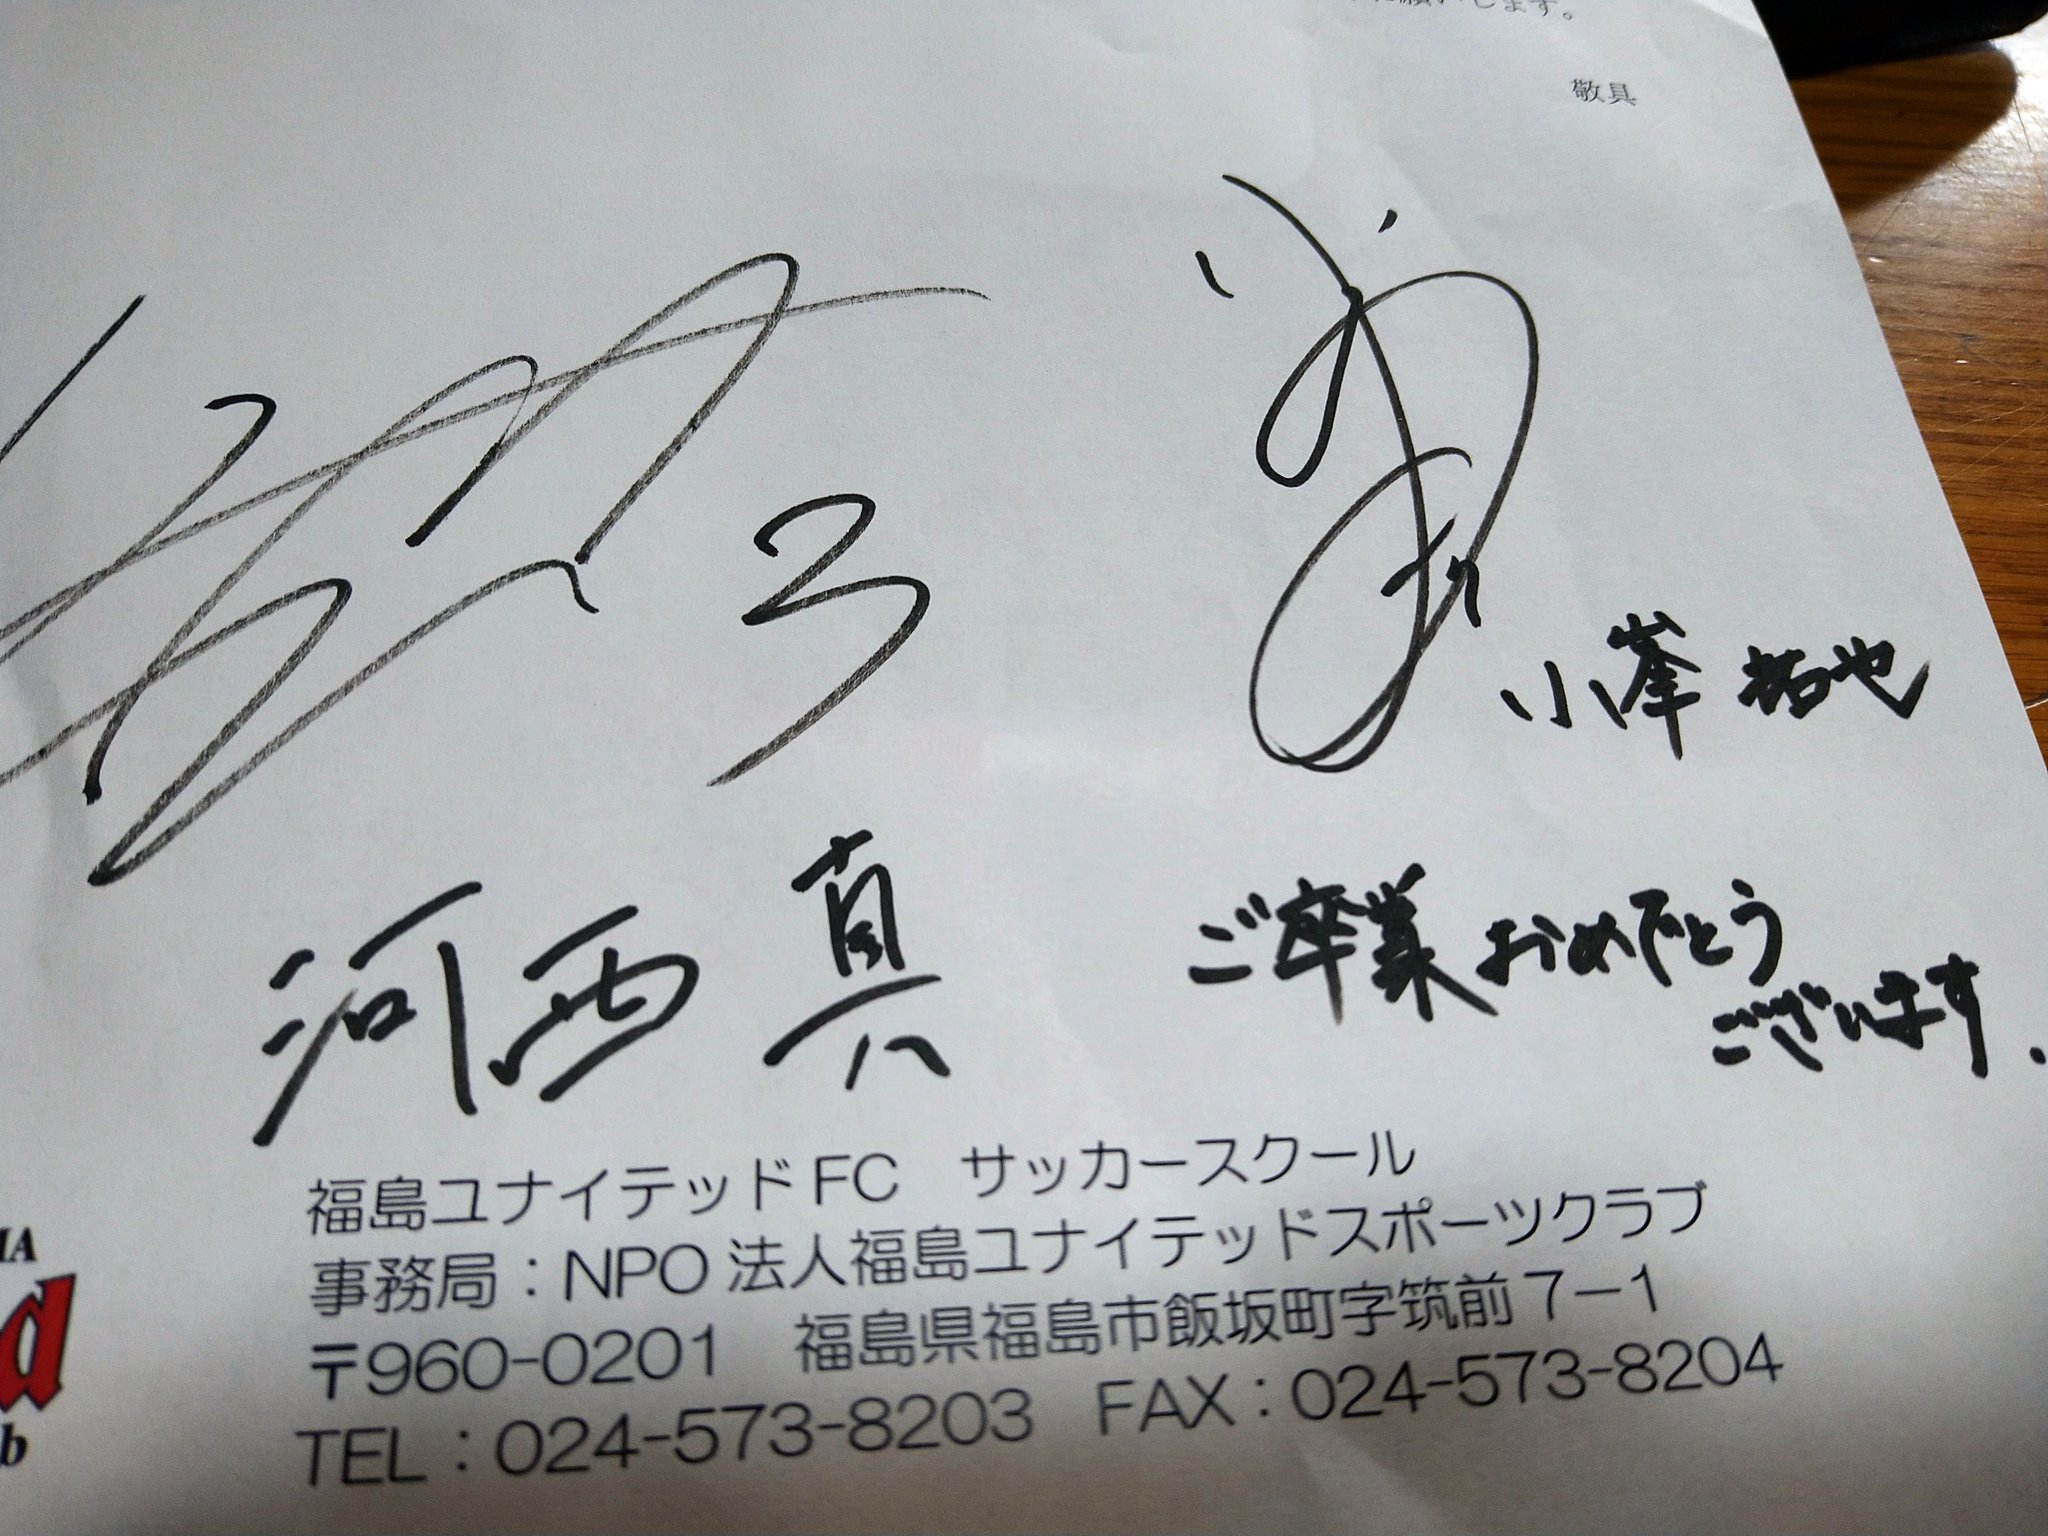 願いします。
敬具
小峯 拓也
河西 真
ご卒業おめでとう
ございます.
福島ユナイテッドFC サッカースクール
事務局：NPO法人福島ユナイテッドスポーツクラブ
〒960-0201 福島県福島市飯坂町字筑前7－1
TEL：024-573-8203 FAX：024-573-8204
IA
d
b